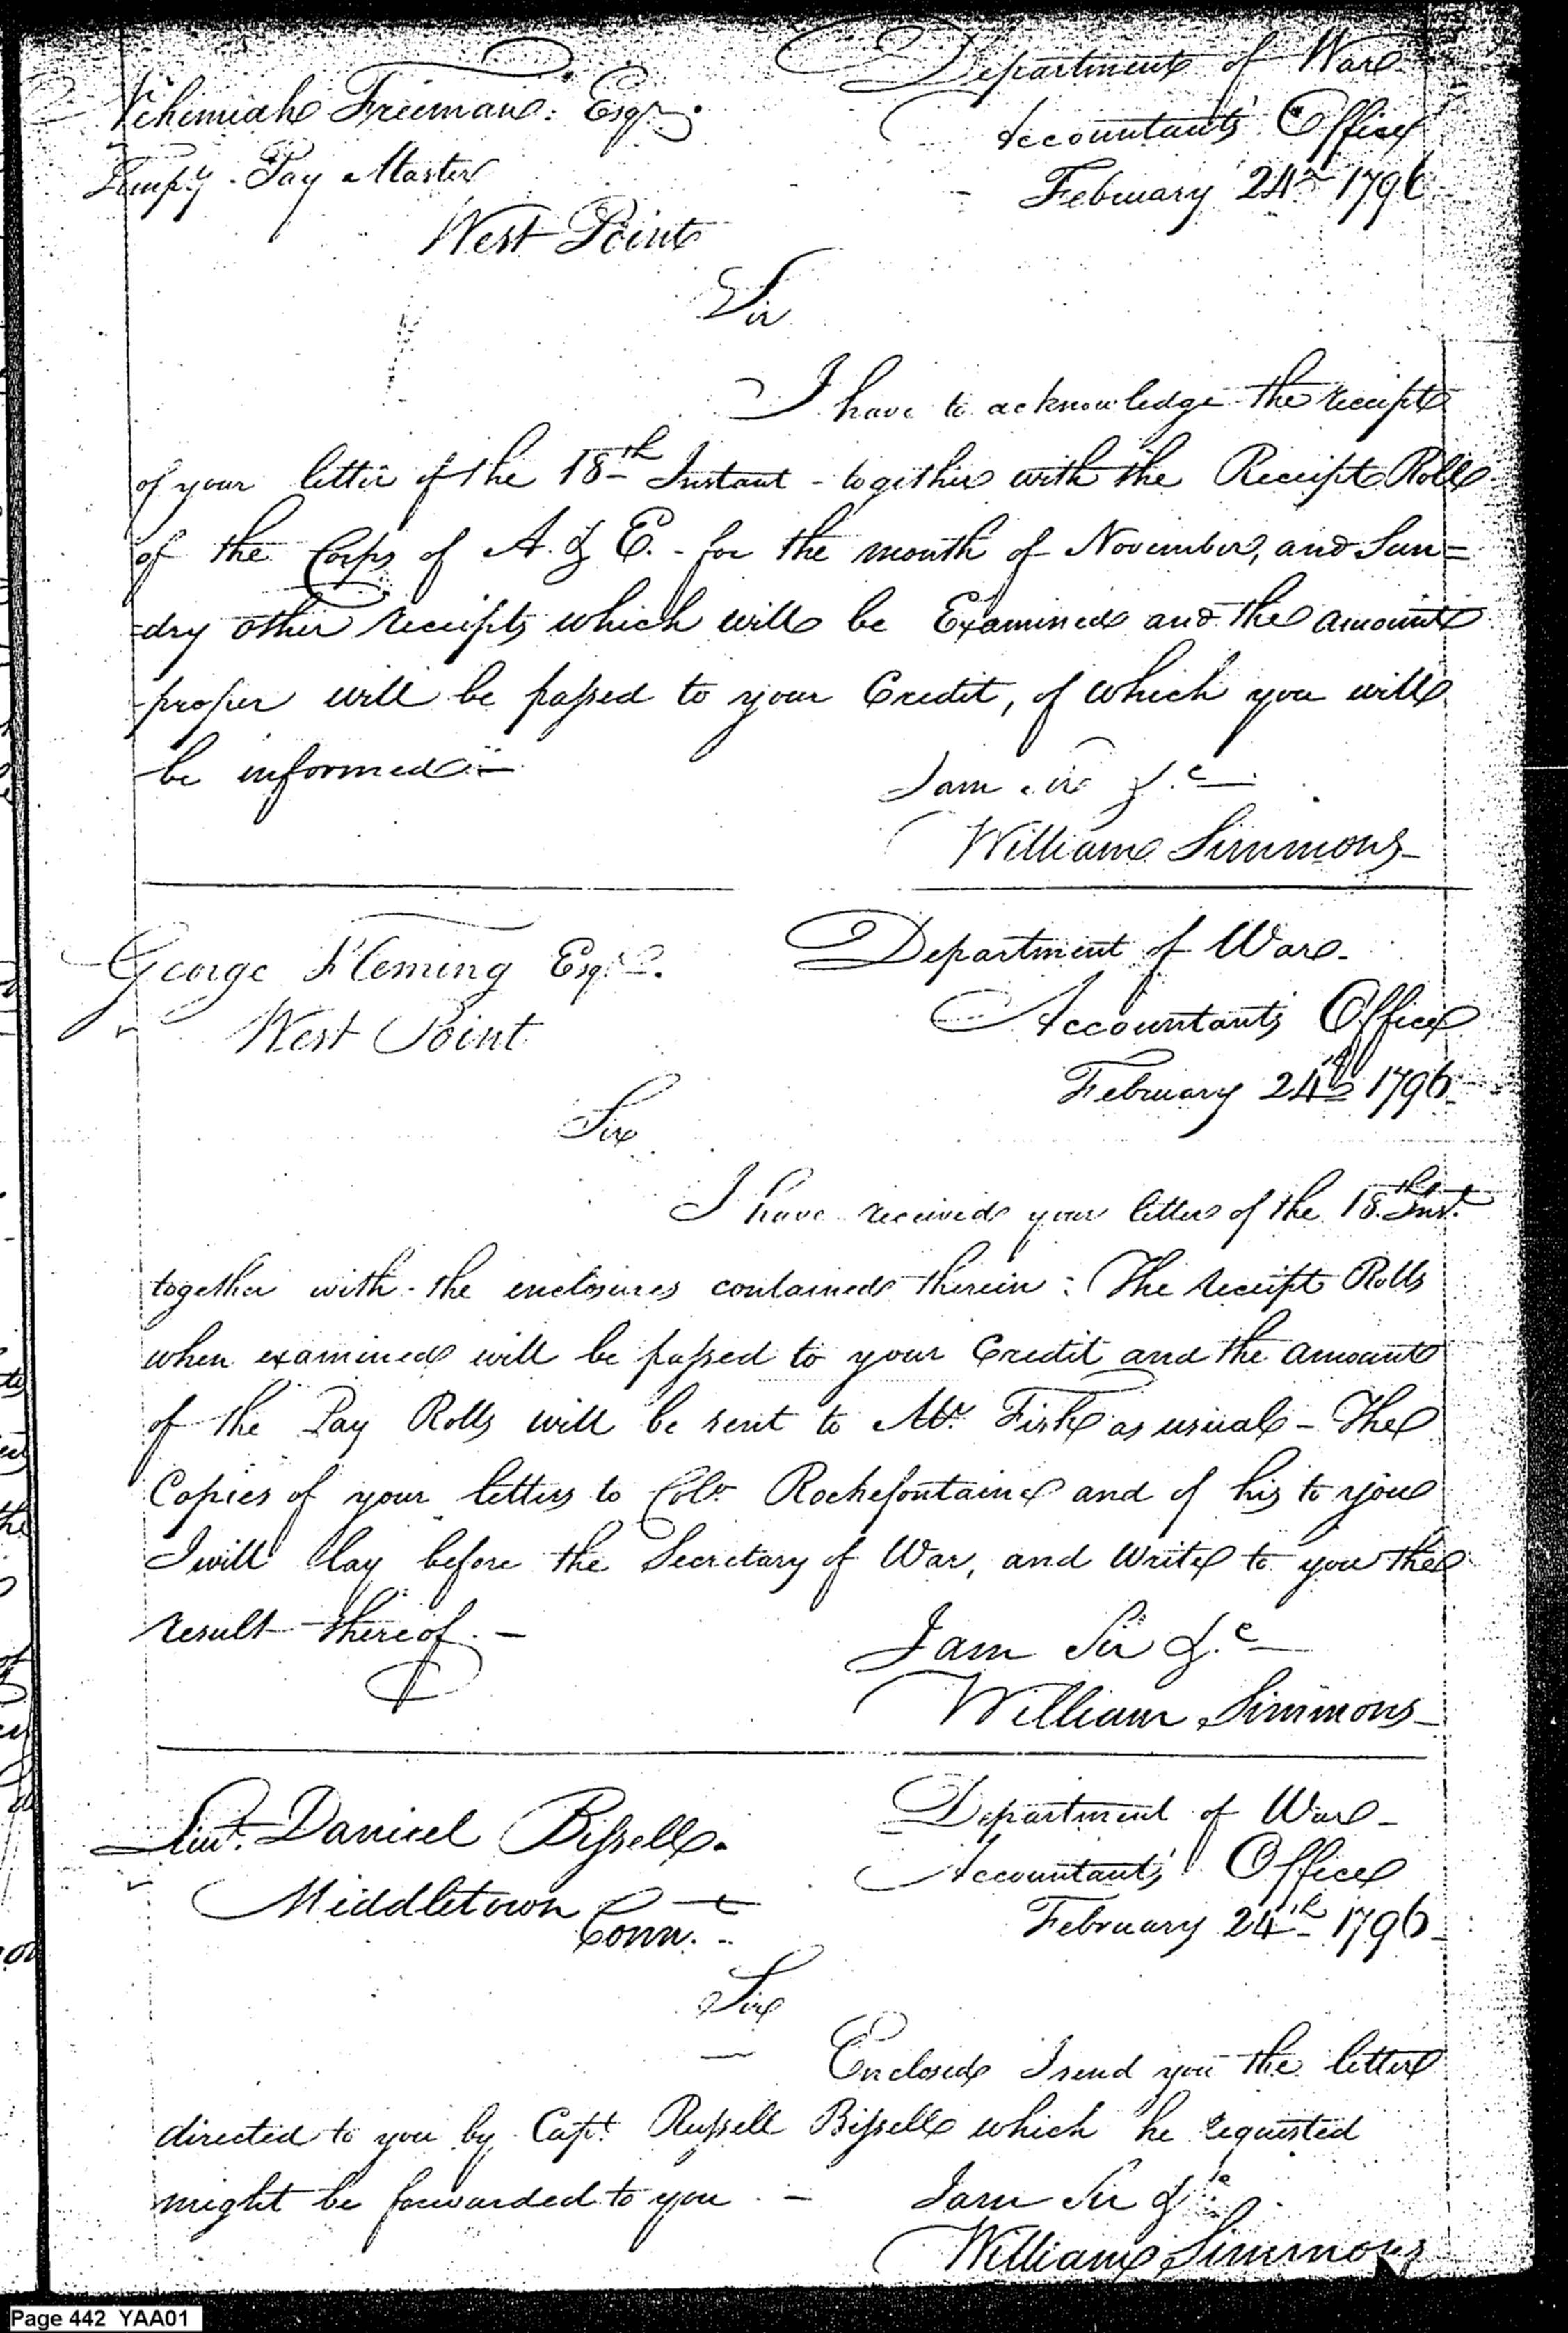 Department of War
Nehemiah Freeman. Esqr.
Accountants Office
Tempy. Pay Master
February 24th 1796
West Point
Sir
I have to acknowledge the receipt
of your letter of the 18th Instant - together with the Receipt Rolls
of the Corps of A. & E. - for the month of November, and Sun=
=dry other receipts which will be Examined and the amount
proper will be passed to your Credit, of which you will
be informed. -
I am Sir &.c
William Simmons
George Fleming Esqr.
Department of War.
West Point
Accountants Office
February 24th 1796
Sir
I have received your letter of the 18th Inst.
together with the enclosures contained therein: The receipt Rolls
when examined will be passed to your Credit and the amount
of the Pay Rolls will be sent to Mr. Fisk as usual - The
Copies of your letters to Colo. Rochefontaine and of his to you
I will lay before the Secretary of War, and Write to you the
result thereof. -
I am Sir &.c
William Simmons
Lieut. Daniel Bissell.
Department of War
Accountants Office
Middletown
Conn.
February 24th 1796
Sir
Enclosed I send you the letter
directed to you by Capt. Russell Bissell which he requested
might be forwarded to you. -
I am Sir &c.
William Simmons
Page 442 YAA01